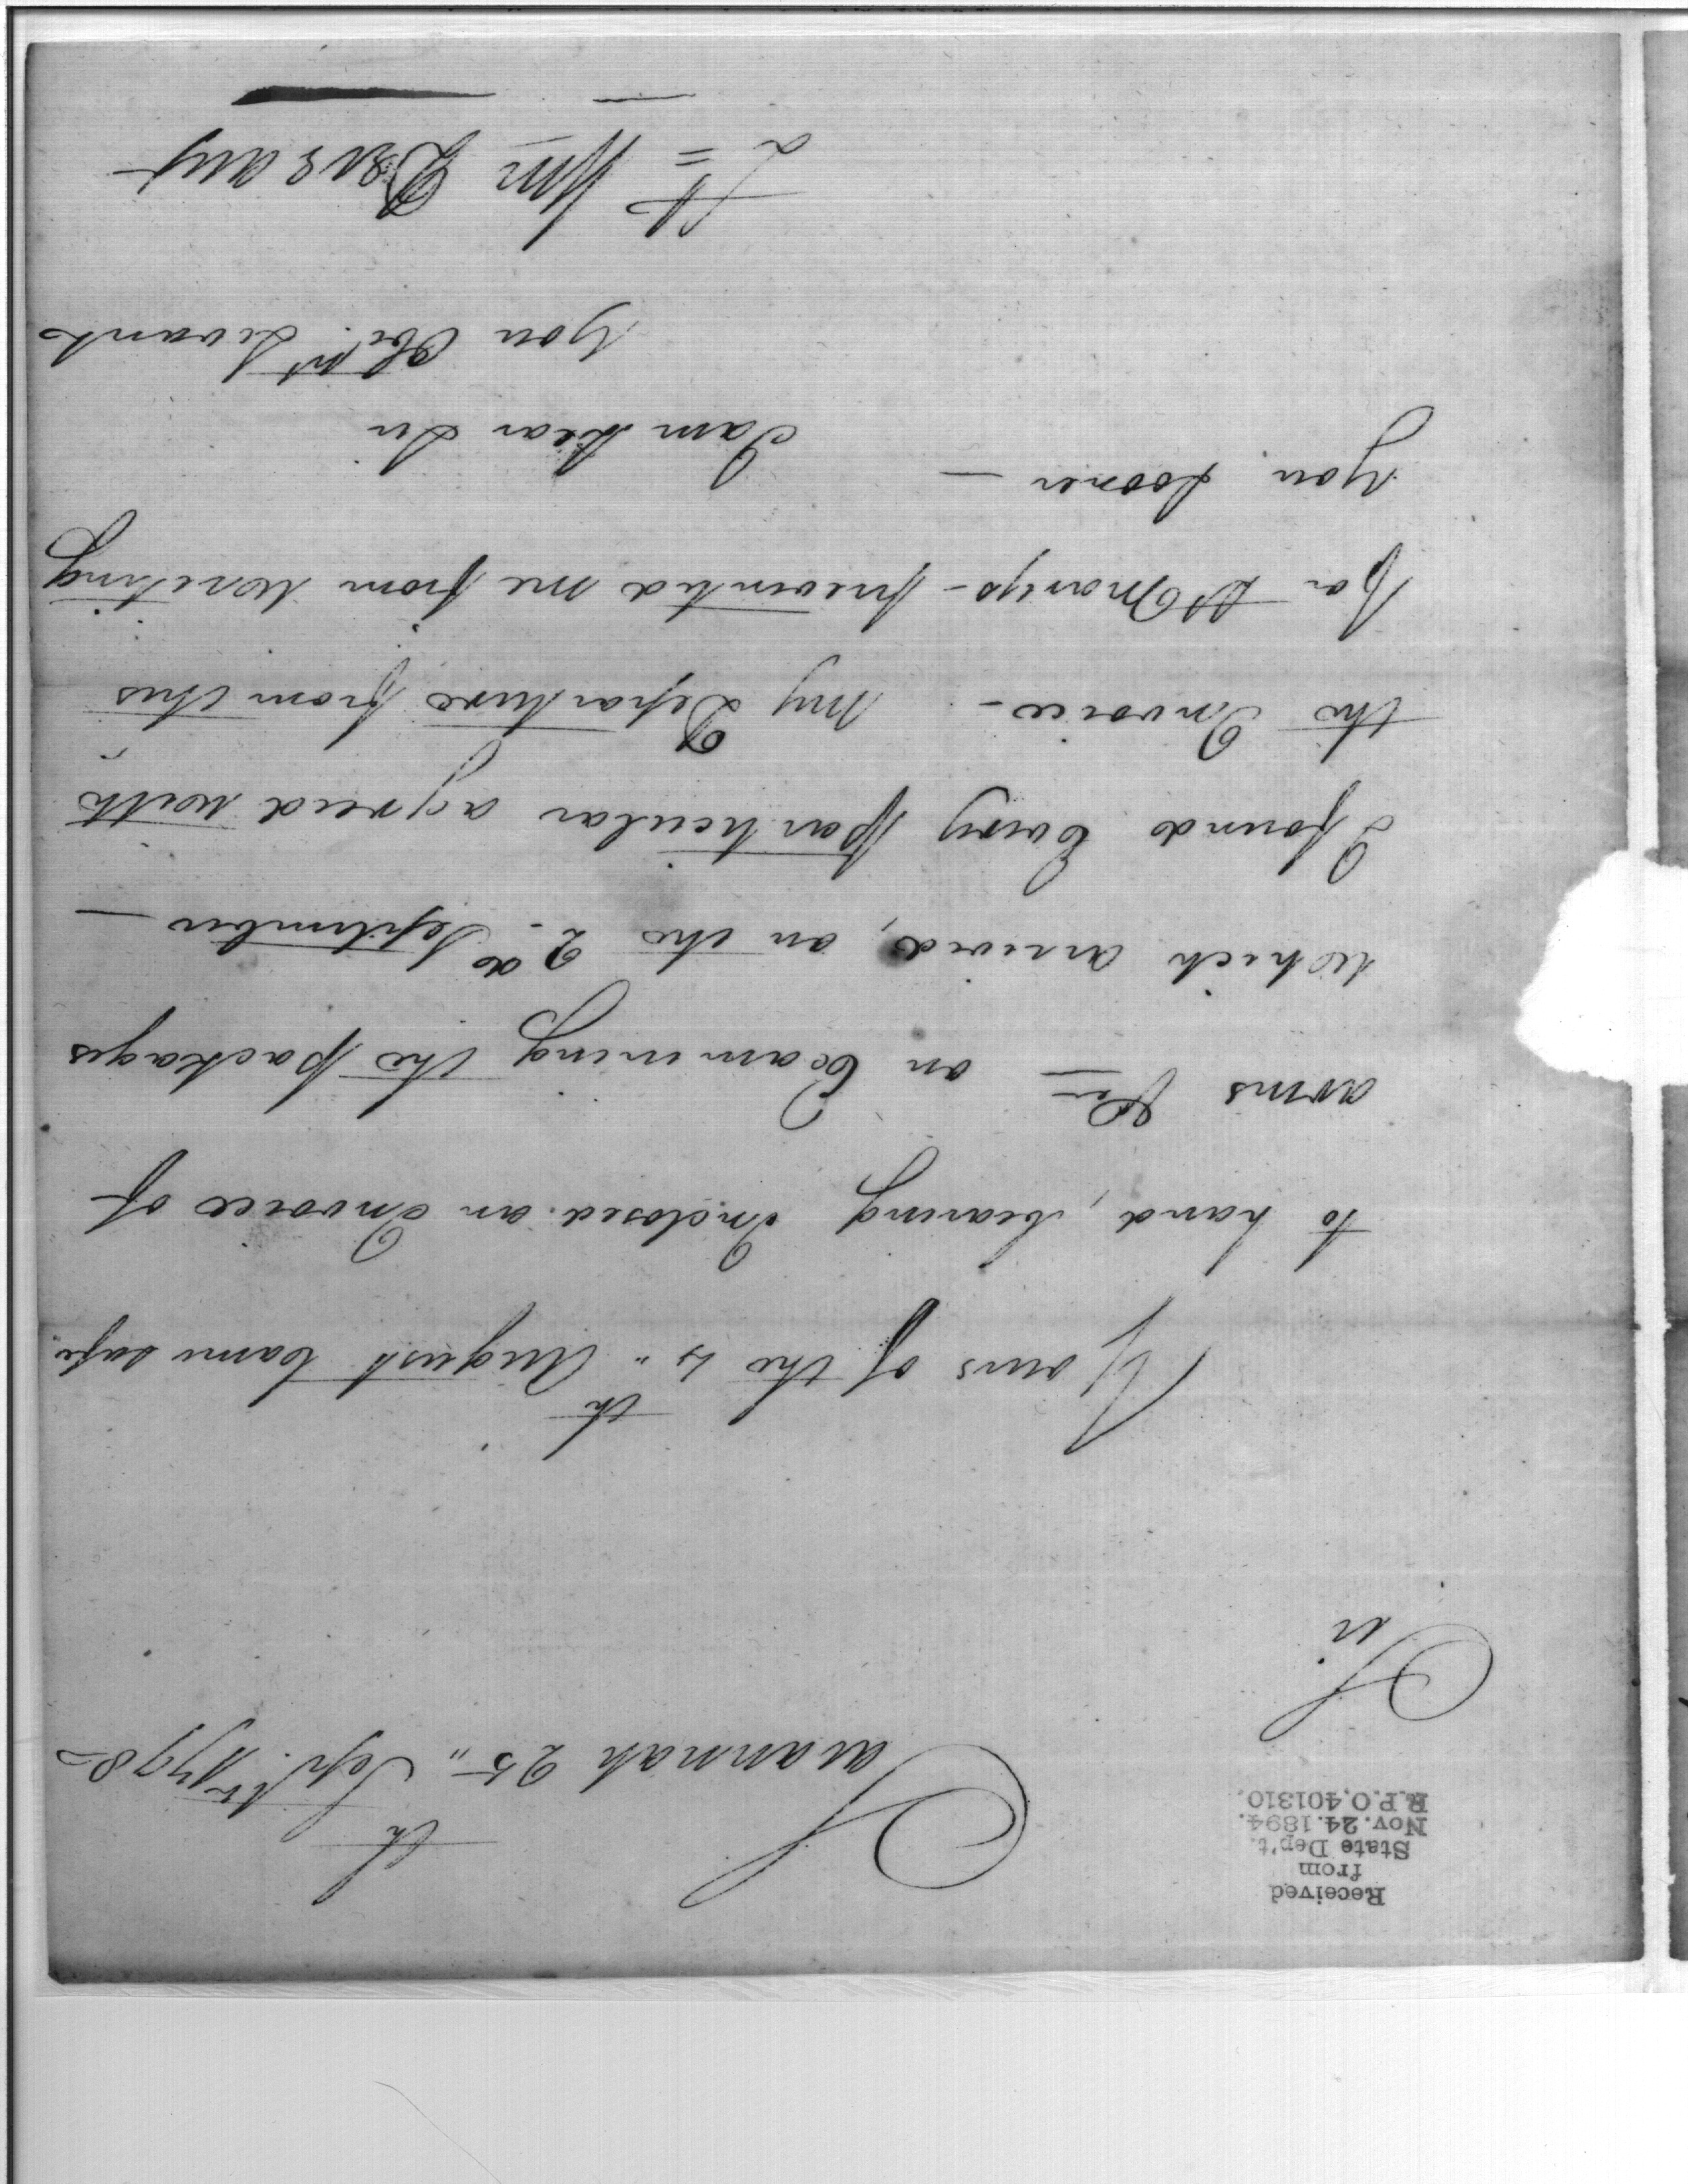 Received
from
State Dep't.
Nov. 24. 1894.
R.P.O. 401310.
Savannah 25,, th Sepr. 1798 -
Sir
Yours of the ,, th August Came safe
to hand, bearing Inclosed an Invoice of
arms &c - on Examining the packages
which arrived, on the 2d September -
I found Every Particular agreed with
the Invoice - My Departure from this
for St Marys - prevented me from Writing
you Sooner -
I am Dear Sir
your Obt Servant